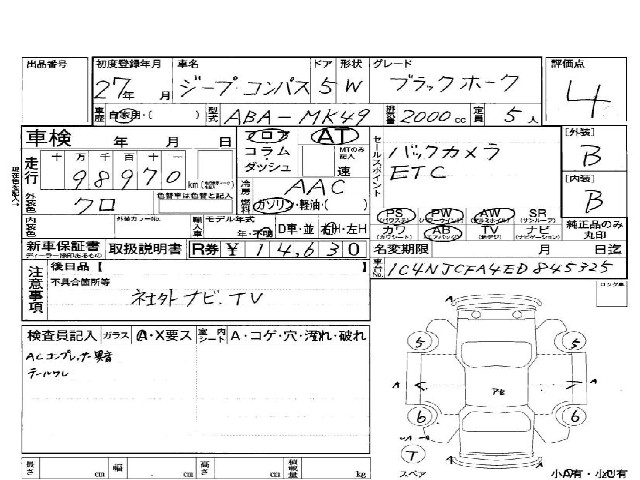 出品番号 初度登録年月 車名 ドア 形状 グレード 評価点
27年 月 ジープ・コンパス 5 W ブラックホーク 4
車歴 自家用・( ) 型式 ABA-MK49 排気量 2000cc 定員 5人
車検 年 月 日 フロア AT セールスポイント バックカメラ [外装]
コラム・ダッシュ MTのみ記入 速 ETC B
走行 十 万 千 百 十 一
98970 km
冷房 AAC [内装]
外装色 クロ 色替車は色替と記入 燃料 ガソリン・軽油・( ) B
PS AW PW SR
内装色 外装カラーNo. 輸入車 モデル年式 年・不明 D車・並 右H・左H カワ AB TV ナビ 純正品のみ丸印
新車保証書 取扱説明書 R券 ¥14,630 名変期限 月 日迄
ディーラー捺印あるもの
注意事項 後日品【 】 車台No. 1C4NJCFA4ED845325
不具合箇所等 ロック車
社外ナビ、TV
検査員記入 ガラス A・X要ス 室内シート A・コゲ・穴・汚れ・破れ
ACコンプレッサ異音
テールワレ
5 5
A A アセ A
6 6
T
スペア 小A有・小U有
長さ cm 幅 cm 高さ cm 積載量 kg